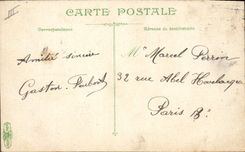 CARTE POSTALE
Correspondance
Adresse du destinataire
Amitié sincère
Gaston
Mr Marcel Perron
32 rue Abel
Paris